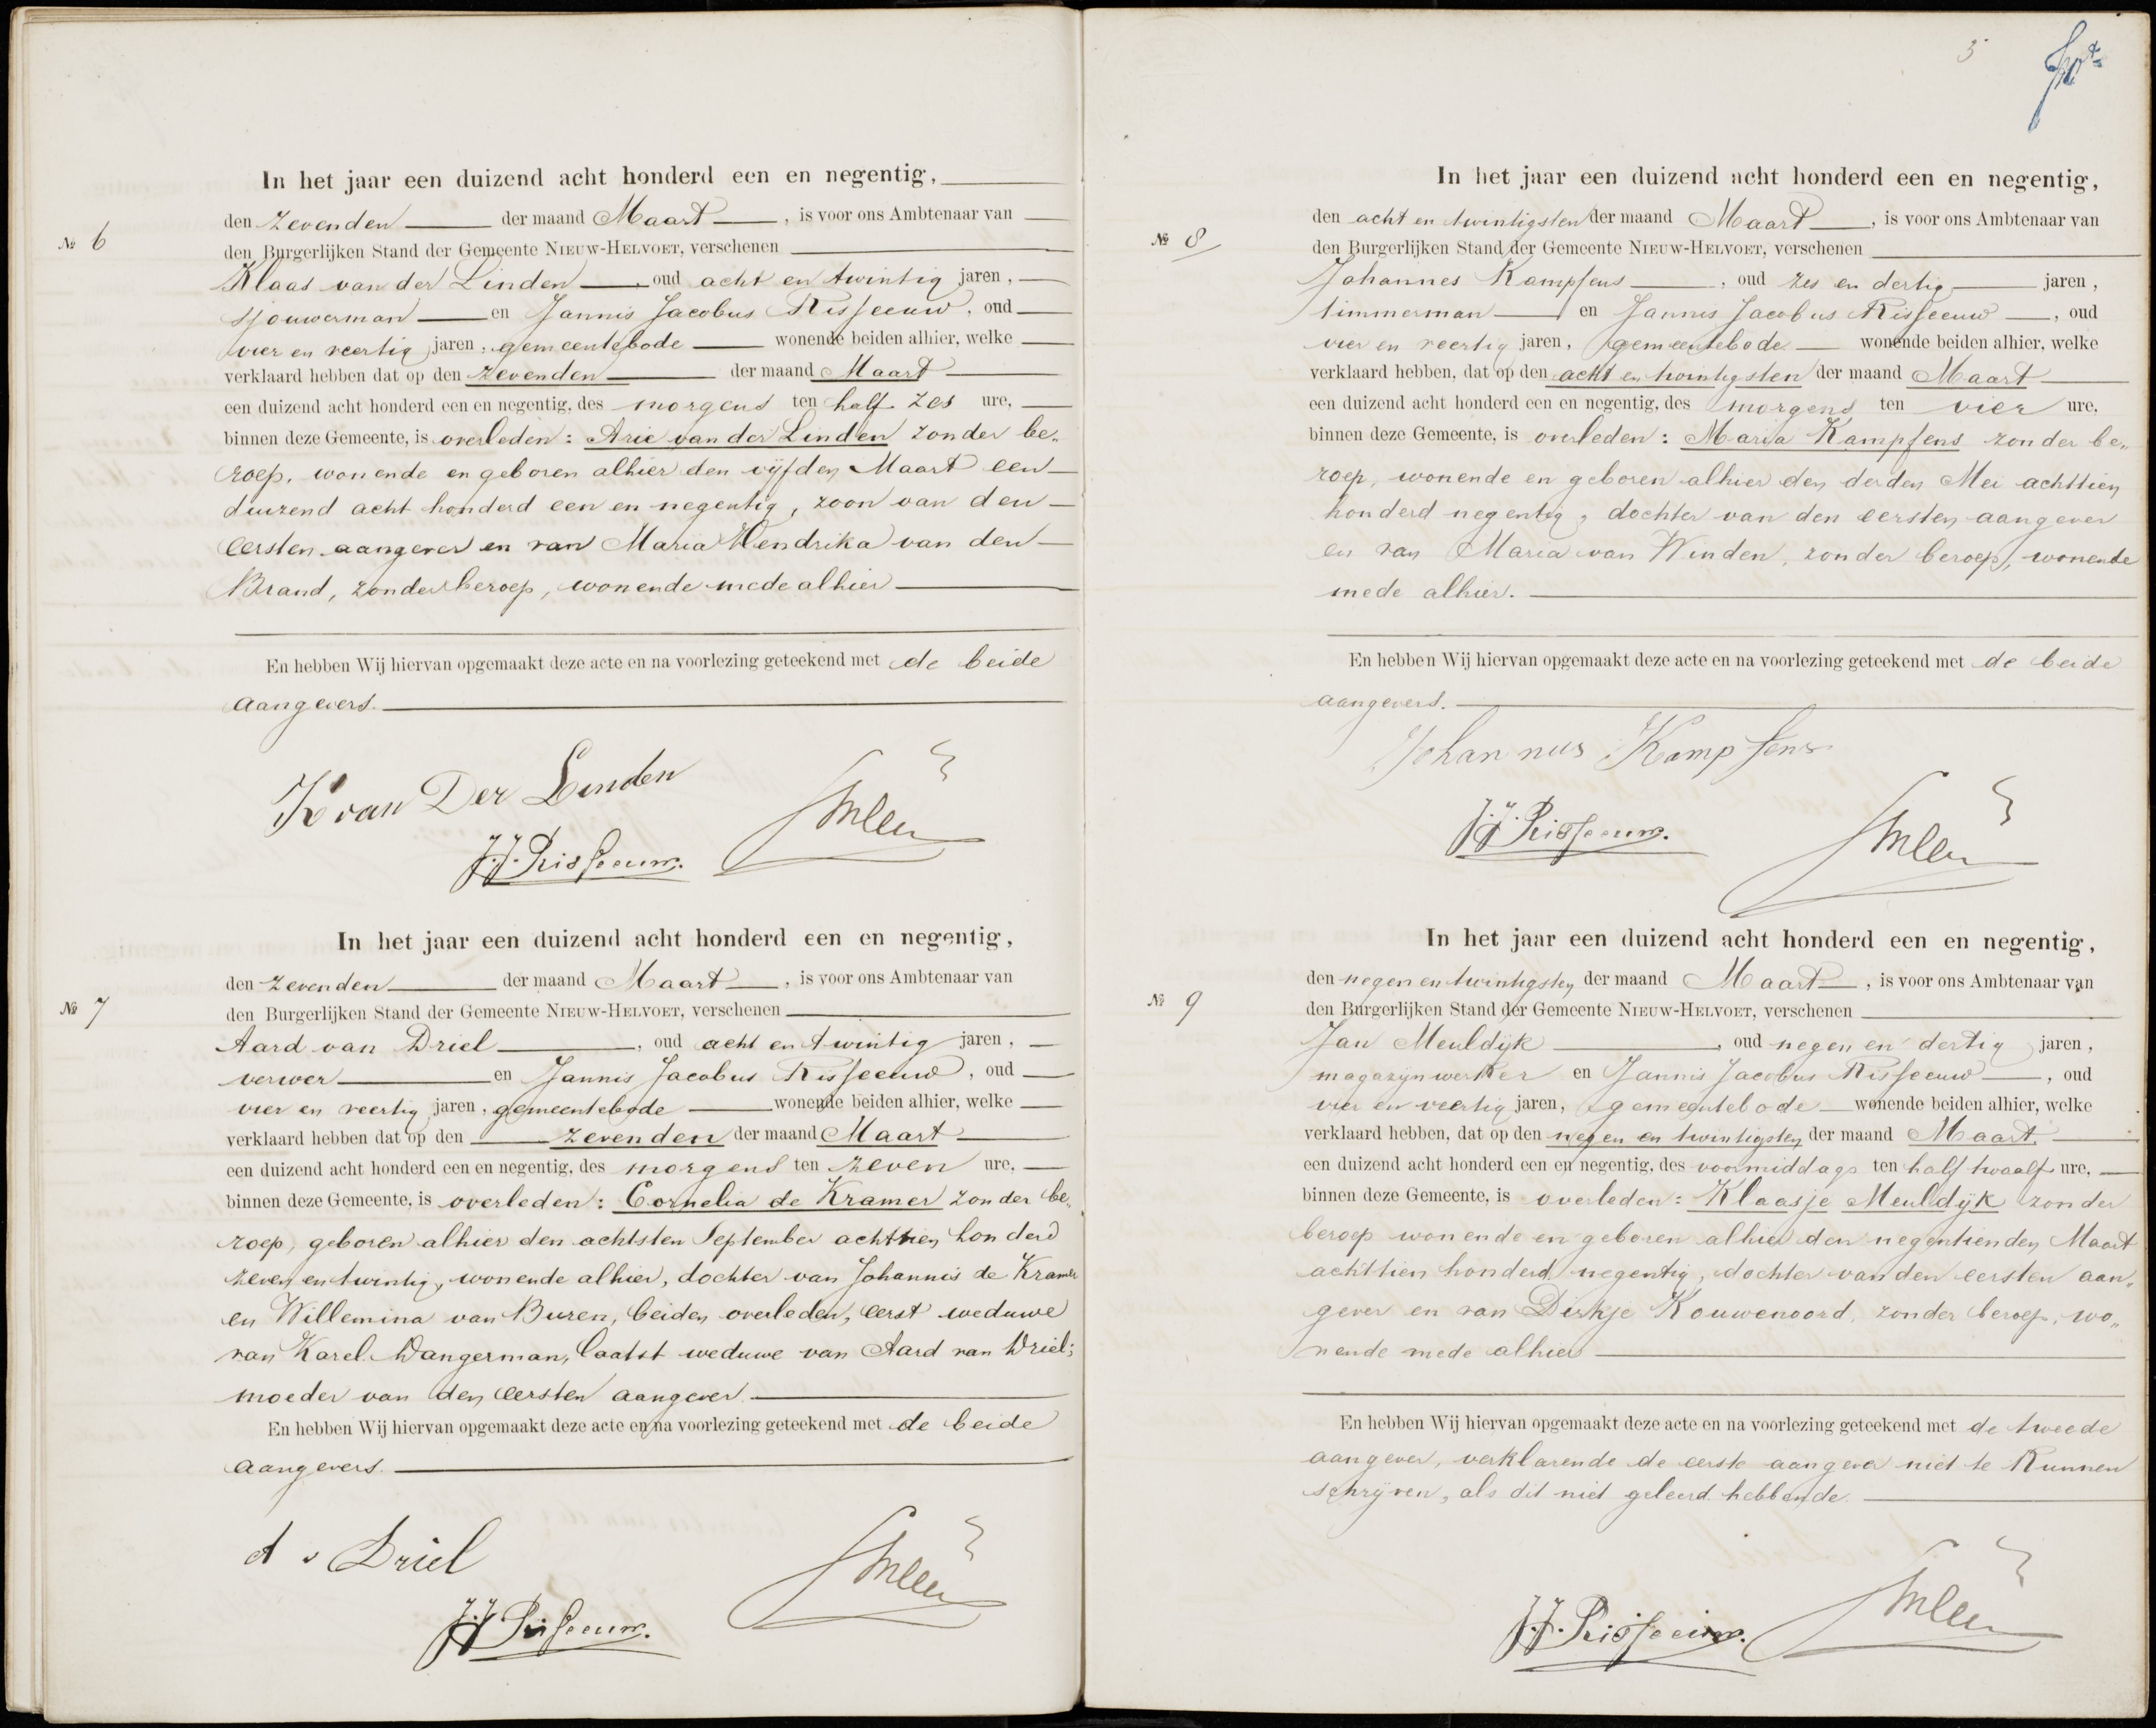 In het jaar een duizend acht honderd een en negentig,
№ 6
den zevenden der maand Maart, is voor ons Ambtenaar van
den Burgerlijken Stand der Gemeente NIEUW-HELVOET, verschenen
Klaas van der Linden, oud acht en twintig jaren,
sjouwerman en Jannis Jacobus Risseeuw, oud
vier en veertig jaren, gemeentebode wonende beiden alhier, welke
verklaard hebben dat op den zevenden der maand Maart
een duizend acht honderd een en negentig, des morgens ten half zes ure,
binnen deze Gemeente, is overleden: Arie van der Linden zonder be„
roep, wonende en geboren alhier den vijfden Maart een
duizend acht honderd een en negentig, zoon van den
eersten aangever en van Maria Hendrika van den
Brand, zonder beroep, wonende mede alhier
En hebben Wij hiervan opgemaakt deze acte en na voorlezing geteekend met de beide
aangevers.
K van Der Linden
J.J. Risseeuw.
In het jaar een duizend acht honderd een en negentig,
№ 7
den zevenden der maand Maart, is voor ons Ambtenaar van
den Burgerlijken Stand der Gemeente NIEUW-HELVOET, verschenen
Aard van Driel, oud acht en twintig jaren,
verwer en Jannis Jacobus Risseeuw, oud
vier en veertig jaren, gemeentebode wonende beiden alhier, welke
verklaard hebben dat op den zevenden der maand Maart
een duizend acht honderd een en negentig, des morgens ten zeven ure,
binnen deze Gemeente, is overleden: Cornelia de Kramer zonder be„
roep, geboren alhier den achtsten September achttien honderd
zeven en twintig, wonende alhier, dochter van Johannis de Kramer
en Willemina van Buren, beiden overleden, eerst weduwe
van Karel Dangerman, laatst weduwe van Aard van Driel;
moeder van den eersten aangever.
En hebben Wij hiervan opgemaakt deze acte en na voorlezing geteekend met de beide
aangevers.
A v Driel
J.J. Risseeuw.
5
In het jaar een duizend acht honderd een en negentig,
№ 8
den acht en twintigsten der maand Maart, is voor ons Ambtenaar van
den Burgerlijken Stand der Gemeente NIEUW-HELVOET, verschenen
Johannes Kampfens, oud zes en dertig jaren,
timmerman en Jannis Jacobus Risseeuw, oud
vier en veertig jaren, gemeentebode wonende beiden alhier, welke
verklaard hebben, dat op den acht en twintigsten der maand Maart
een duizend acht honderd een en negentig, des morgens ten vier ure,
binnen deze Gemeente, is overleden: Maria Kampfens zonder be„
roep, wonende en geboren alhier den derden Mei achttien
honderd negentig, dochter van den eersten aangever
en van Maria van Winden, zonder beroep, wonende
mede alhier.
En hebben Wij hiervan opgemaakt deze acte en na voorlezing geteekend met de beide
aangevers.
Johannus Kampfens
J.J. Risseeuw.
In het jaar een duizend acht honderd een en negentig,
№ 9
den negen en twintigsten der maand Maart, is voor ons Ambtenaar van
den Burgerlijken Stand der Gemeente NIEUW-HELVOET, verschenen
Jan Meuldijk, oud negen en dertig jaren,
magazijnwerker en Jannis Jacobus Risseeuw, oud
vier en veertig jaren, gemeentebode wonende beiden alhier, welke
verklaard hebben, dat op den negen en twintigsten der maand Maart
een duizend acht honderd een en negentig, des voormiddags ten half twaalf ure,
binnen deze Gemeente, is overleden: Klaasje Meuldijk zonder
beroep wonende en geboren alhier den negentienden Maart
achttien honderd negentig, dochter van den eersten aan„
gever en van Dirkje Kouwenoord, zonder beroep, wo„
nende mede alhier
En hebben Wij hiervan opgemaakt deze acte en na voorlezing geteekend met de tweede
aangever, verklarende de eerste aangever niet te kunnen
schrijven, als dit niet geleerd hebbende.
J.J. Risseeuw.